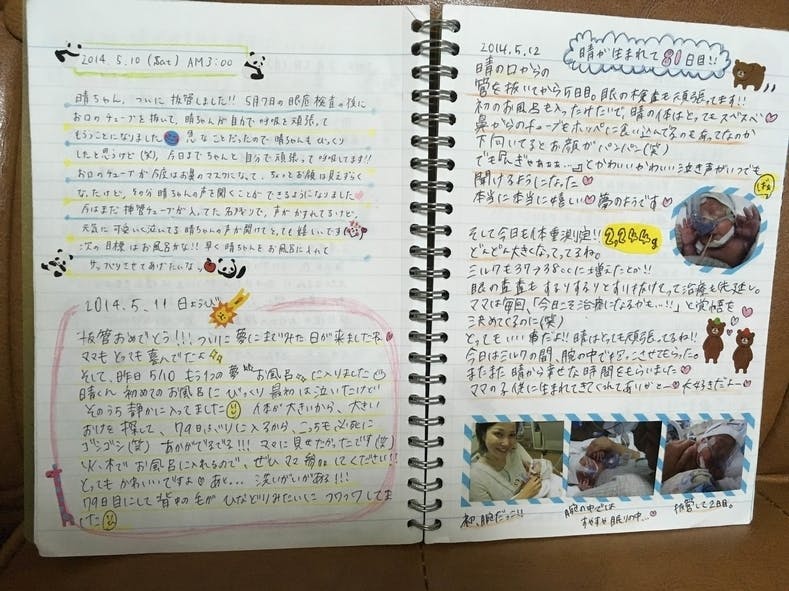 2014.5.10 (Sat) AM3:00
晴ちゃん、ついに抜管しました!! 5月7日の眼底検査の後に
お口のチューブを抜いて、晴ちゃんが自分で呼吸を頑張って
もらうことになりました 急なことだったので晴ちゃんもびっくり
したと思うけど(笑)、今日までちゃんと自分で頑張って呼吸してます!!
お口のチューブが今度はお鼻のマスクになって、ちょっとお顔は見えずらく
なったけど、その分晴ちゃんの声を聞くことができるようになりました
今はまだ挿管チューブが入ってた名残りで、声がかすれてるけど、
元気に可愛いく泣いてる晴ちゃんの声が聞けてとっても嬉しいです
次の目標はお風呂かな!! 早く晴ちゃんをお風呂に入れて
サッパリさせてあげたいなぁ
2014.5.11 日ようび
抜管おめでとう!!! ついに夢にまでみた日が来ましたネ
ママもとっても喜んでたよ
そして、昨日5/10 もう1つの夢 お風呂に入りました
晴くん初めてのお風呂にびっくり 最初は泣いたけど
そのうち静かに入ってました 体が大きいから、大きい
おけを探して、79日ぶりに入るから、こっちも必死に
ゴシゴシ(笑) あかがでるでる!!! ママに見せたかったです(笑)
火・木でお風呂に入れるので、ぜひママ参加してください!!
とってもかわいいですよ あと… 洗いがいがある!!!
79日目にして背中の毛がひなどりみたいにフワッフワしてま
した
2014.5.12
晴が生まれて81日目!!
晴の口からの
管を抜いてから5日目。眼の検査も頑張ってます!!
初のお風呂も入ったみたいで、晴の体はとってもスベスベ
鼻からのチューブもホッペに食い込んでるのもあってなのか
下向いてるとお顔がパンパン(笑)
でも「んぎゃああぁ…」とかわいいかわいい泣き声がいつでも
聞けるようになった
本当に本当に嬉しい 夢のようです
そして今日も体重測定!! 2244g
どんどん大きくなってってるね。
ミルクも37→38ccに増えたとか!!
眼の検査もするりするりとすり抜けてって治療も先延し。
ママは毎回、「今日こそ治療になるかも…!!」と覚悟を
決めてくるのに(笑)
とってもいい事だよ!! 晴はとっても頑張ってるね!!
今日はミルクの間、腕の中で抱っこさせてもらった。
またまた晴から幸せな時間をもらいました
ママの子供に生まれてきてくれてありがとー 大好きだよー
初、腕だっこ!!
腕の中では
すやすや眠り中…
抜管して2日目。